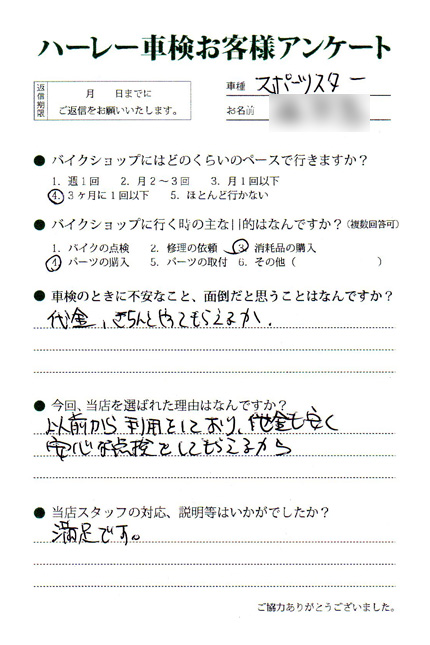 ハーレー車検お客様アンケート
返信期限
月　日までに
ご返信をお願いいたします。
車種 スポーツスター
お名前
● バイクショップにはどのくらいのペースで行きますか？
1. 週１回　2. 月２～３回　3. 月１回以下
4. ３ヶ月に１回以下　5. ほとんど行かない
● バイクショップに行く時の主な目的はなんですか？（複数回答可）
1. バイクの点検　2. 修理の依頼　3. 消耗品の購入
4. パーツの購入　5. パーツの取付　6. その他（　　　）
● 車検のときに不安なこと、面倒だと思うことはなんですか？
代金、きちんとやってもらえるか.
● 今回、当店を選ばれた理由はなんですか？
以前から利用をしており、代金も安く
安心な点検をしてもらえるから
● 当店スタッフの対応、説明等はいかがでしたか？
満足です。
ご協力ありがとうございました。